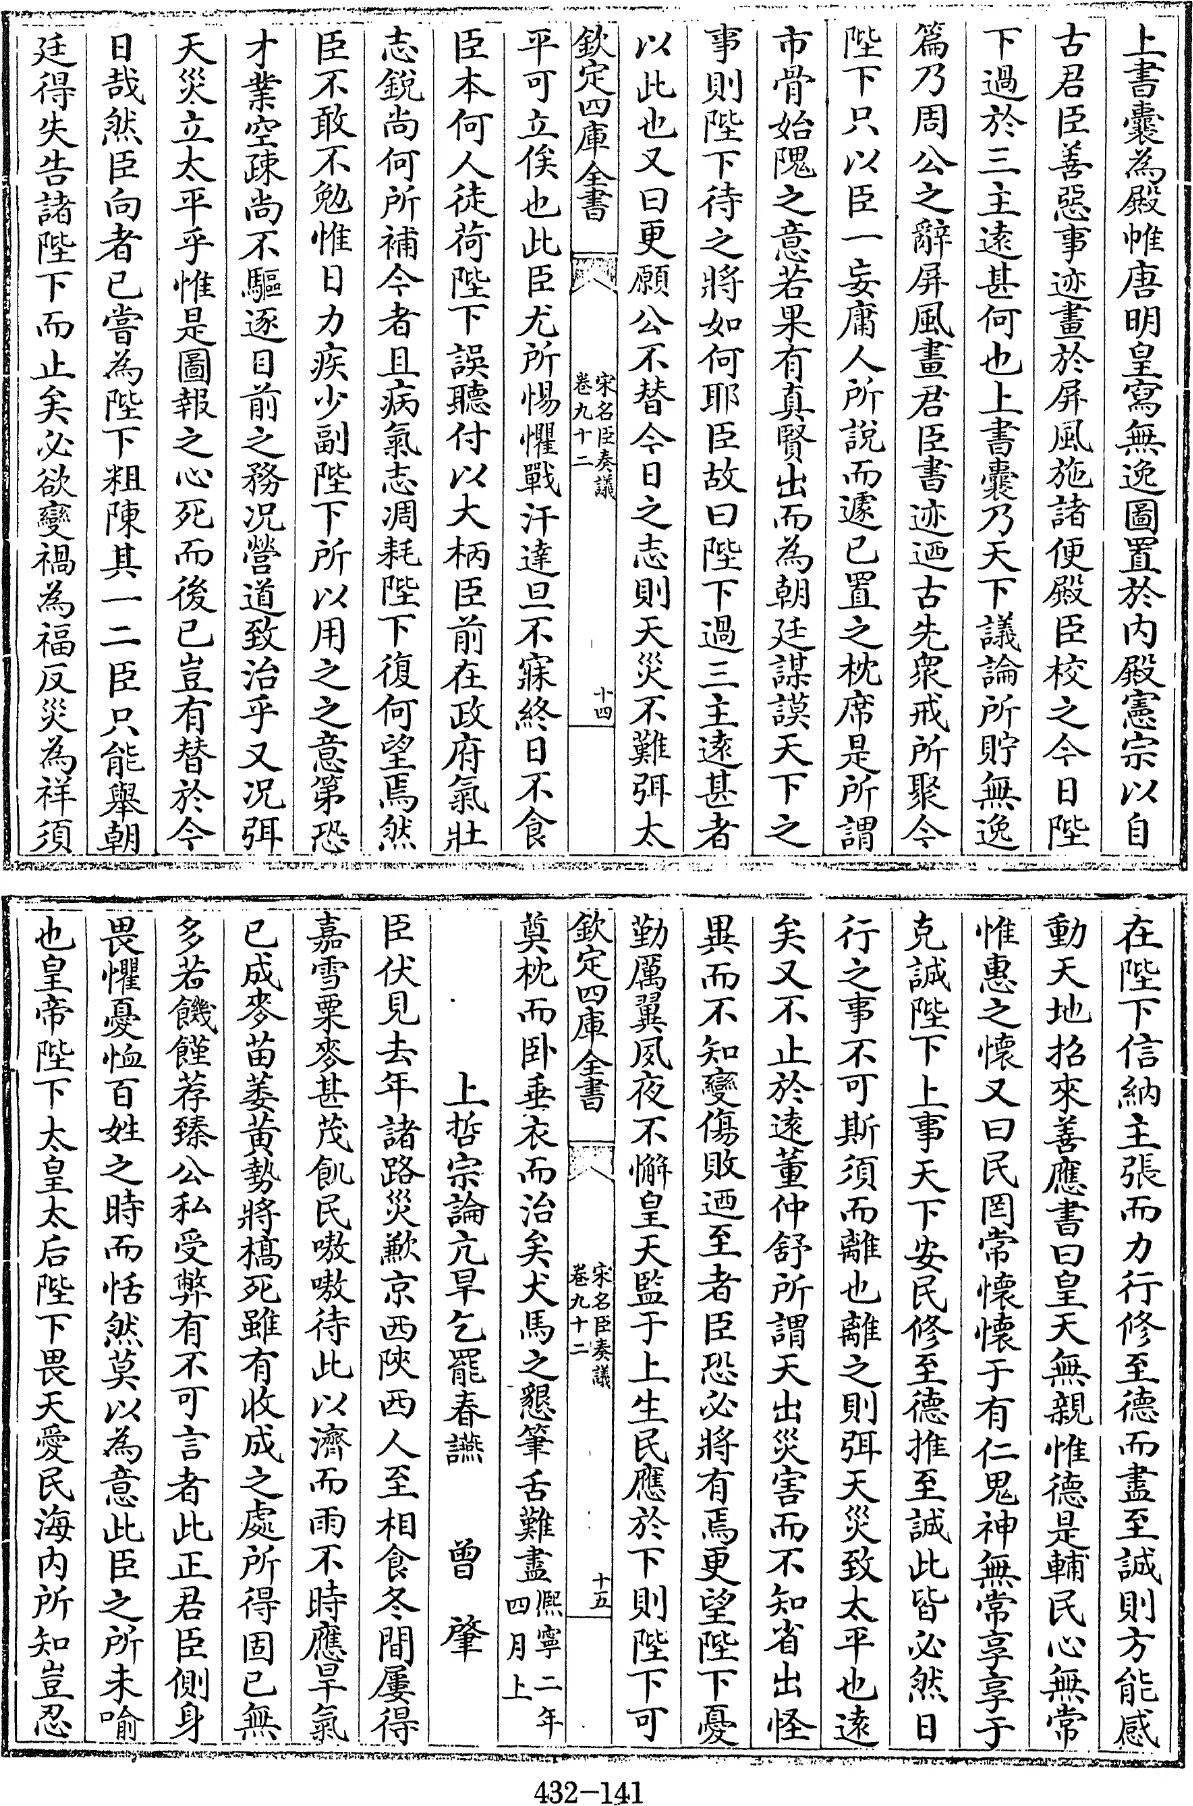 上書囊為殿帷唐明皇寫無逸圖置於内殿憲宗以自
古君臣善惡事迹畫於屏風施諸便殿臣校之今日陛
下過於三主逺甚何也上書囊乃天下議論所貯無逸
篇乃周公之辭屏風畫君臣書迹迺古先衆戒所聚今
陛下只以臣一妄庸人所說而遽已置之枕席是所謂
市骨始隗之意若果有真賢出而為朝廷謀謨天下之
事則陛下待之將如何耶臣故曰陛下過三主逺甚者
以此也又曰更願公不替今日之志則天災不難弭太
欽定四庫全書
宋名臣奏議
卷九十二
十四
平可立俟也此臣尤所惕懼戰汗達旦不寐終日不食
臣本何人徒荷陛下誤聽付以大柄臣前在政府氣壯
志銳尚何所補今者且病氣志凋耗陛下復何望焉然
臣不敢不勉惟日力疾少副陛下所以用之之意第恐
才業空疎尚不驅逐目前之務况營道致治乎又况弭
天災立太平乎惟是圖報之心死而後已豈有替於今
日哉然臣向者已嘗為陛下粗陳其一二臣只能舉朝
廷得失告諸陛下而止矣必欲變禍為福反災為祥須
在陛下信納主張而力行修至德而盡至誠則方能感
動天地招來善應書曰皇天無親惟德是輔民心無常
惟惠之懷又曰民罔常懷懷于有仁鬼神無常享享于
克誠陛下上事天下安民修至德推至誠此皆必然日
行之事不可斯須而離也離之則弭天災致太平也逺
矣又不止於逺董仲舒所謂天出災害而不知省出怪
異而不知變傷敗迺至者臣恐必將有焉更望陛下憂
勤厲翼夙夜不懈皇天監于上生民應於下則陛下可
欽定四庫全書
宋名臣奏議
卷九十二
十五
奠枕而卧垂衣而治矣犬馬之懇筆舌難盡熈寧二年四月上
上哲宗論亢旱乞罷春讌　曾肇
臣伏見去年諸路災歉京西陝西人至相食冬間屢得
嘉雪粟麥甚茂飢民嗷嗷待此以濟而雨不時應旱氣
已成麥苗萎黄勢將槁死雖有收成之處所得固已無
多若饑饉荐臻公私受弊有不可言者此正君臣側身
畏懼憂恤百姓之時而恬然莫以為意此臣之所未喻
也皇帝陛下太皇太后陛下畏天愛民海内所知豈忍
432-141